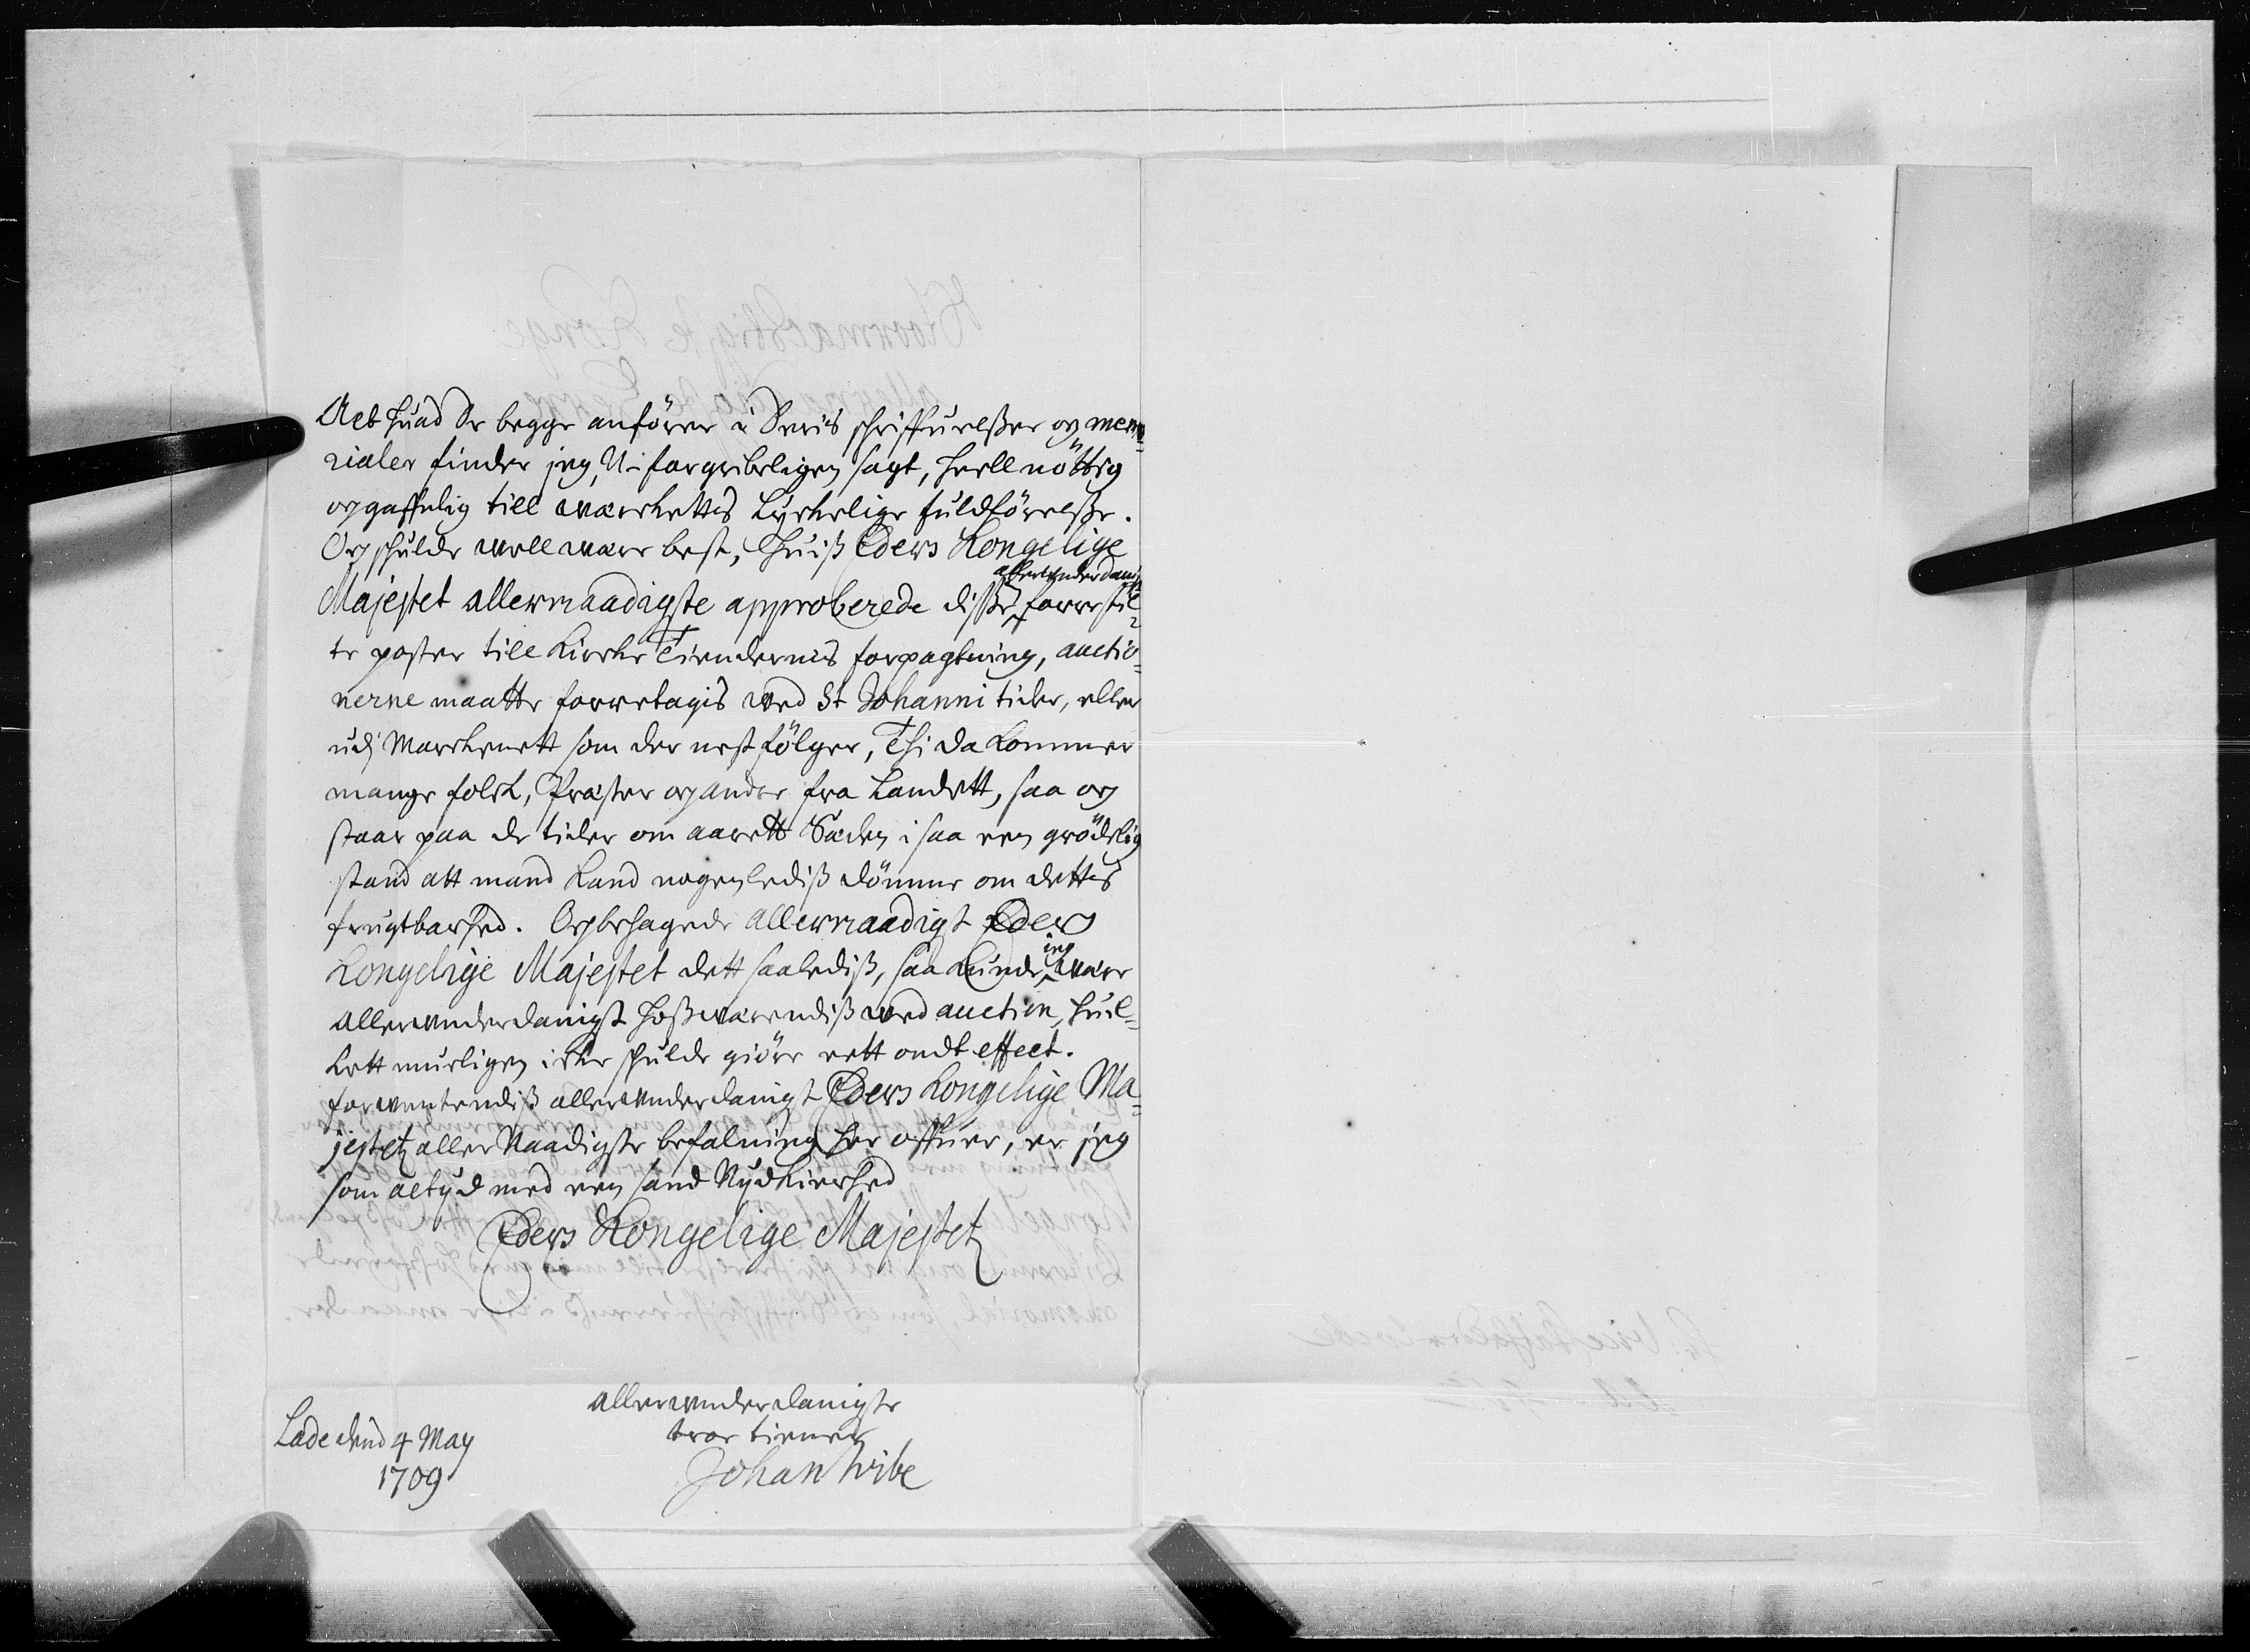 Alt huad De begge anfører i Deris schriffuelßer og memo-
rialer finder jeg, U-forgribeligen sagt, heell nøttig
og gaffnlig till wærckettes Lyckelige fuldførelße.
Og schulde well wære best, huiß Eders Kongelige
Majestet allernaadigste approberede diße allerunderdanigst forrestil-
te poster till Kircke Tiendernis forpagtning, auctio-
nerne maatte forretagis wed St Johanni tider, eller
udj Marckenett som der nest følger, Thi da kommer
mange folck, Præster og andre fra Landett, saa og
staar paa de tider om aarett Sæden i saa een grødelig
stand att mand kand nogenlediß dømme om dettes
frugtbarhed. Og behagede allernaadigst Eders
Kongelige Majestet dett saalediß, saa kunde jeg være
allerunderdanigst hoßwærendiß wed auction, huil-
kett muligen icke schulde giøre ett ondt effect.
forwentendiß allerunderdanigst Eders Kongelige Ma-
jestetz aller Naadigste befalning her offuer, er jeg
som altyd med een sand Nydkierhed
Eders Kongelige Majestetz
allerunderdanigste
troe tiener
Johan Wibe
Lade dend 4 May
1709